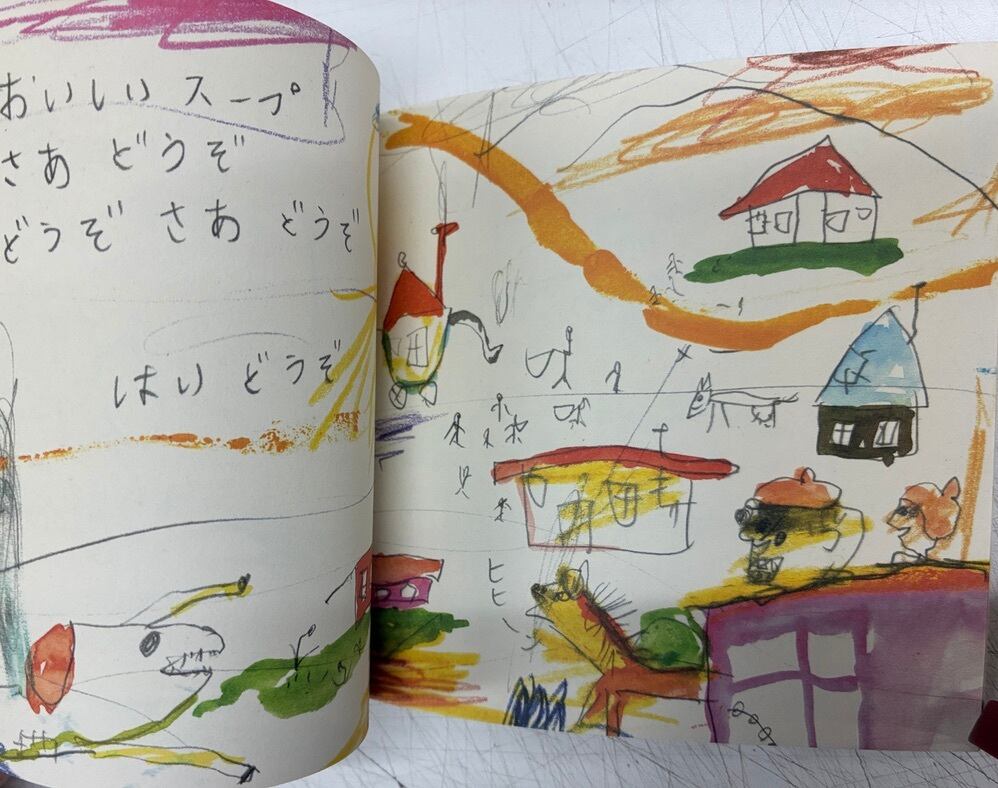 おいしい スープ
さあ どうぞ
どうぞ さあ どうぞ
はい どうぞ
ヒヒーン